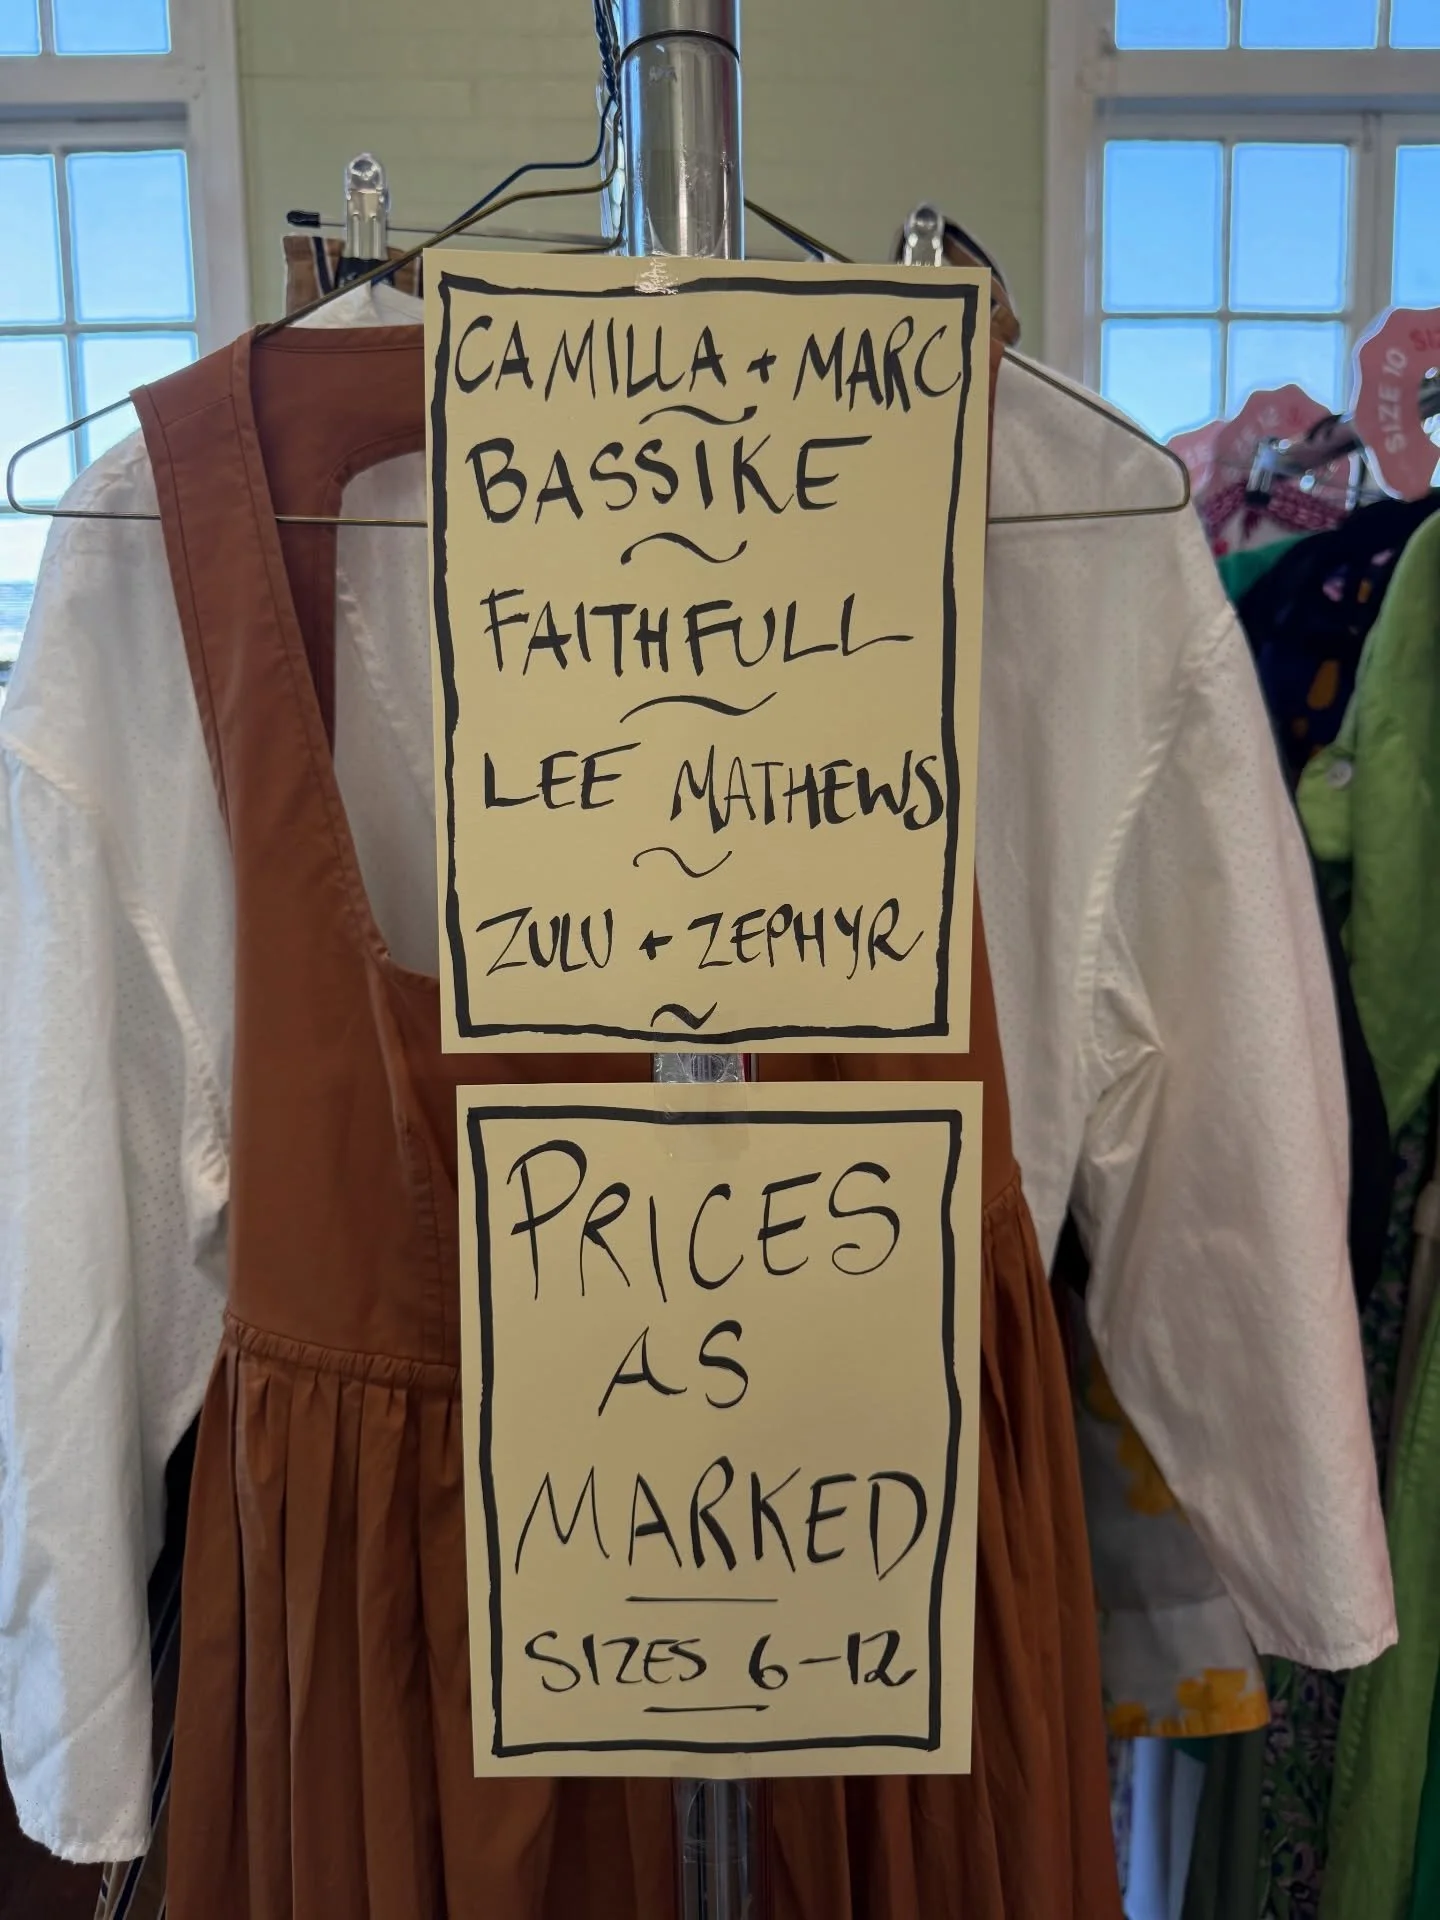 CAMILLA + MARC
~
BASSIKE
~
FAITHFULL
~
LEE MATHEWS
~
ZULU + ZEPHYR
~
PRICES
AS
MARKED
SIZES 6-12
SIZE 10